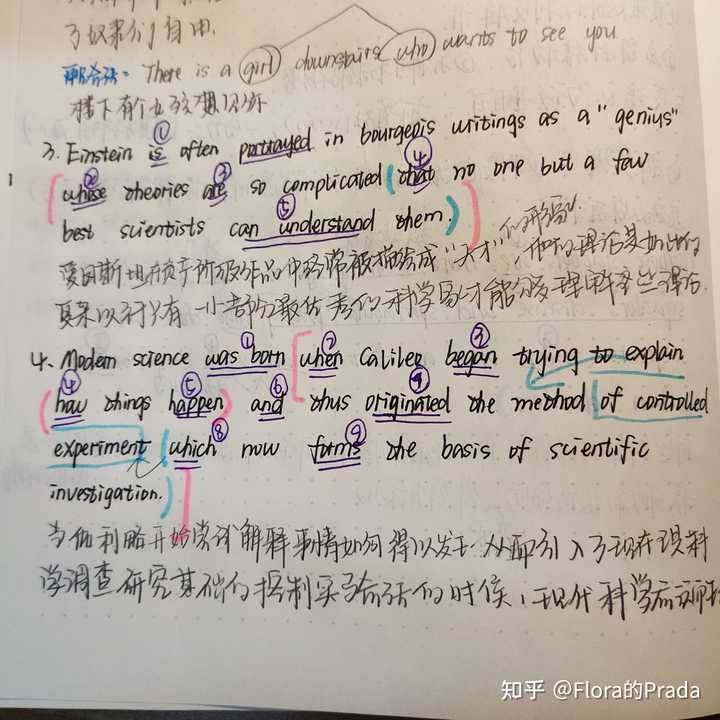 了奴隶们自由.
There is a girl downstairs who wants to see you
楼下有个女孩想见你
3. Einstein is often portrayed in bourgeois writings as a "genius"
whose theories are so complicated (that no one but a few
best scientists can understand them.)
爱因斯坦在资产阶级作品中经常被描绘成"天才"的形象,他的理论是如此的
复杂以至于只有一小部分最优秀的科学家才能够理解这些理论.
4. Modern science was born when Galileo began trying to explain
(how things happen) and thus originated the method of controlled
experiment (which now forms the basis of scientific
investigation.)
当伽利略开始尝试解释事情如何得以发生从而引入了现在现科
学调查研究基础的控制实验方法的时候,现代科学应
知乎 @Flora的Prada